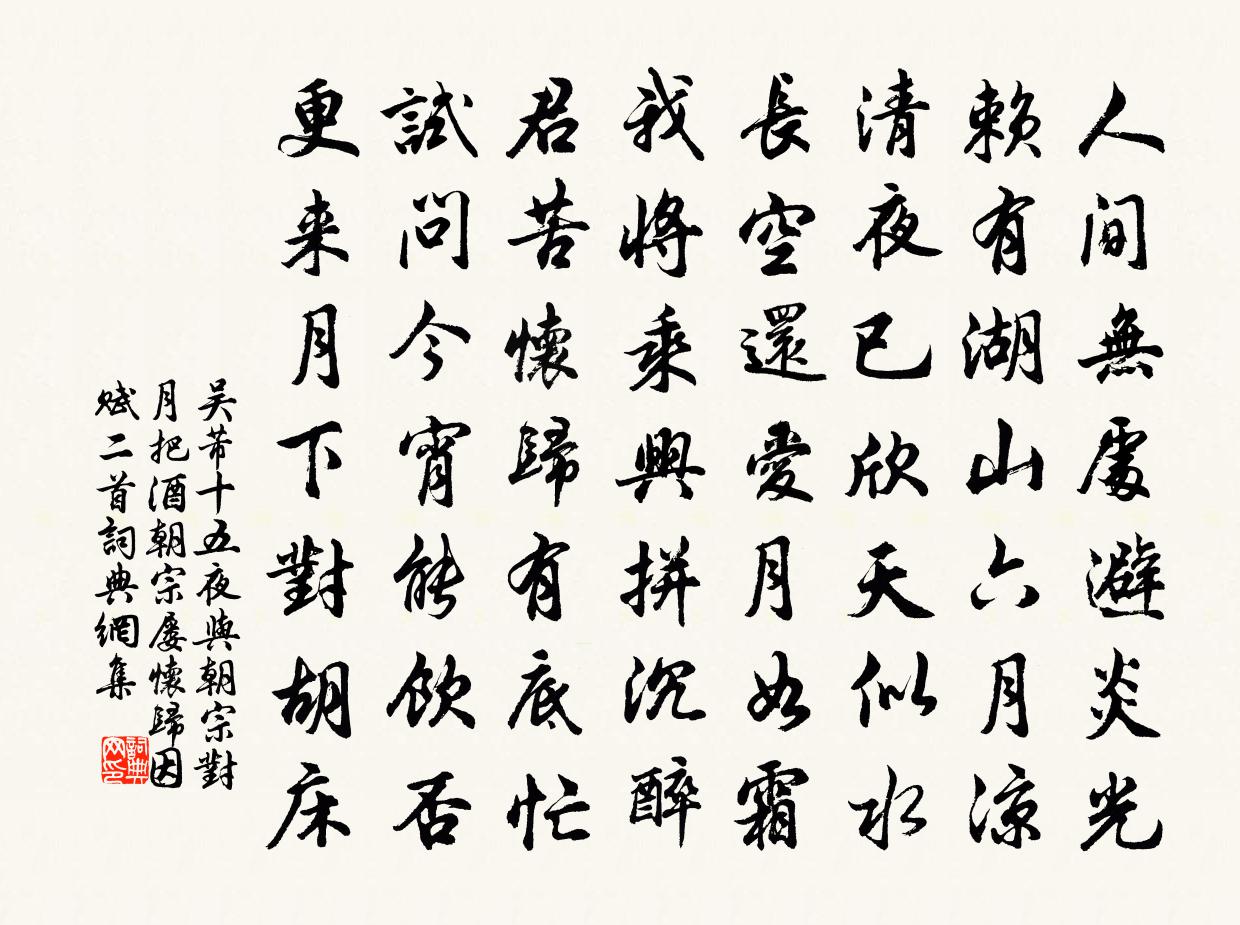 人間無處避炎光
賴有湖山六月涼
清夜已欣天似水
長空還愛月如霜
我將乘興拼沉醉
君苦懷歸有底忙
試問今宵能飲否
更来月下對胡床
吴芾十五夜與朝宗對
月把酒朝宗屢懷歸因
赋二首詞典網集
詞典
网印